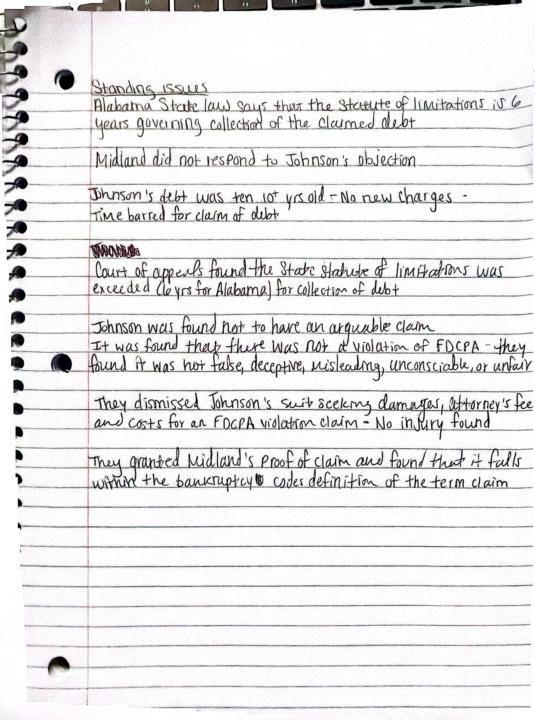 Standing issues
Alabama State law says that the Statute of limitations is 6
years governing collection of the claimed debt
Midland did not respond to Johnson's objection
Johnson's debt was ten 10+ yrs old - No new charges -
Time barred for claim of debt
Court of appeals found the State Statute of limitations was
exceeded (6 yrs for Alabama) for collection of debt
Johnson was found not to have an arguable claim
It was found that there was not a violation of FDCPA - they
found it was not false, deceptive, misleading, unconsciable, or unfair
They dismissed Johnson's suit seeking damages, attorney's fee
and costs for an FDCPA violation claim - No injury found
They granted Midland's Proof of claim and found that it falls
within the bankruptcy codes definition of the term claim